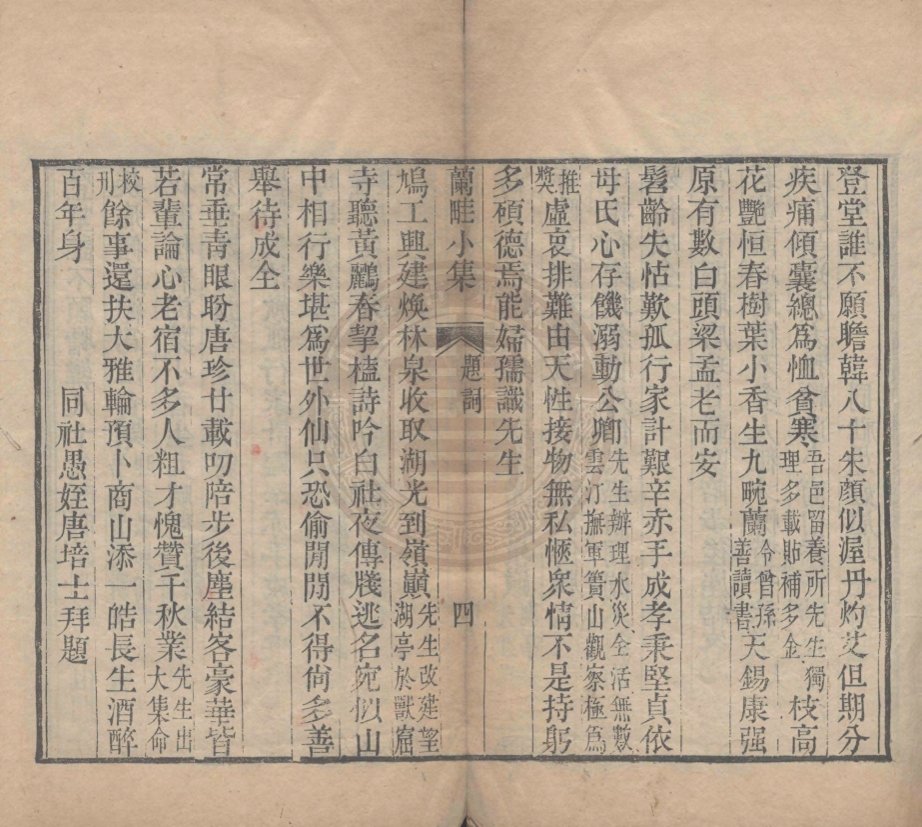 登堂誰不願瞻韓八十朱顔似渥丹灼艾但期分
疾痛傾囊總爲恤貧寒吾邑留養所先生獨理多載貼補多金枝高
花艷恒春樹葉小香生九畹蘭令曾孫善讀書天錫康强
原有數白頭梁孟老而安
髫齡失怙歎孤行家計艱辛赤手成孝秉堅貞依
母氏心存饑溺動公卿先生辦理水災全活無數雲汀撫軍簣山觀察極爲
推獎虛哀排難由天性接物無私愜衆情不是持躬
多碩德焉能婦孺識先生
蘭畦小集 題詞 四
鳩工興建煥林泉收取湖光到嶺巔先生改建望湖亭於獸窟
寺聽黃鸝春挈榼詩吟白社夜傳牋逃名宛似山
中相行樂堪爲世外仙只恐偷閒閒不得尙多善
舉待成全
常垂靑眼盼唐珍廿載叨陪步後塵結客豪華皆
若輩論心老宿不多人粗才愧贊千秋業先生出大集命
校刊餘事還扶大雅輪預卜商山添一皓長生酒醉
百年身 同社愚姪唐培士拜題